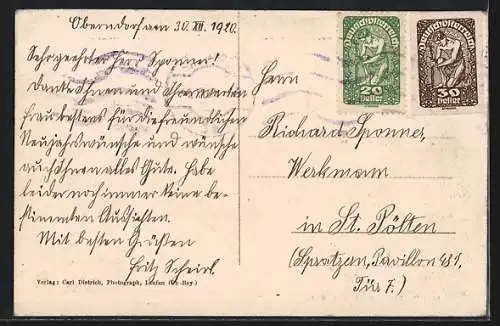 Oberndorf am 30. XII. 1920.
Sehrgeehrter Herr Sponner!
Danke Ihnen und Ihrer werten
Frau bestens für die freundlichen
Neujahrswünsche und wünsche
auch Ihnen alles Gute. Habe
leider noch immer keine be-
stimmten Aussichten.
Mit besten Grüßen
Fritz Scheirl.
Verlag: Carl Dietrich, Photograph, Laufen (Ob.-Bay.)
Deutschösterreich
20
Heller
Deutschösterreich
50
Heller
Herrn
Richard Sponner,
Werkmann
in St. Pölten
(Spratzern, Pavillon 451,
Tür 7.)